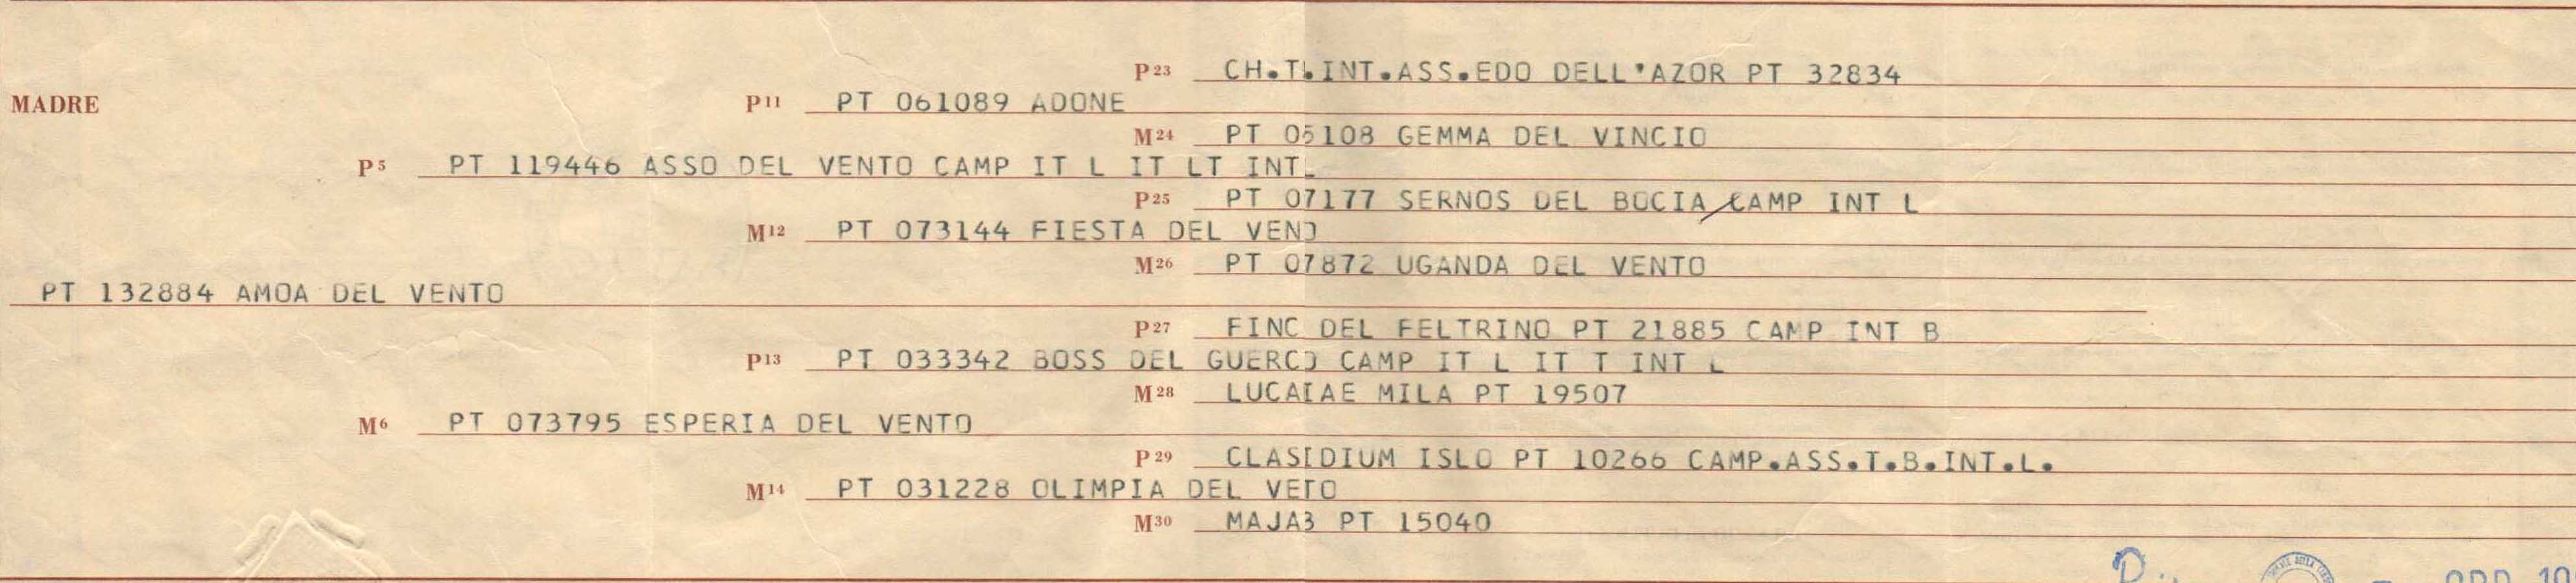 P23 CH.T.INT.ASS.EDO DELL'AZOR PT 32834
MADRE
P11 PT 061089 ADONE
M24 PT 05108 GEMMA DEL VINCIO
P5 PT 119446 ASSO DEL VENTO CAMP IT L IT LT INT
P25 PT 07177 SERNOS DEL BOCIA CAMP INT L
M12 PT 073144 FIESTA DEL VENO
M26 PT 07872 UGANDA DEL VENTO
PT 132884 AMOA DEL VENTO
P27 FINC DEL FELTRINO PT 21885 CAMP INT B
P13 PT 033342 BOSS DEL GUERCO CAMP IT L IT T INT L
M28 LUCAIAE MILA PT 19507
M6 PT 073795 ESPERIA DEL VENTO
P29 CLASIDIUM ISLO PT 10266 CAMP.ASS.T.B.INT.L.
M14 PT 031228 OLIMPIA DEL VETO
M30 MAJAB PT 15040